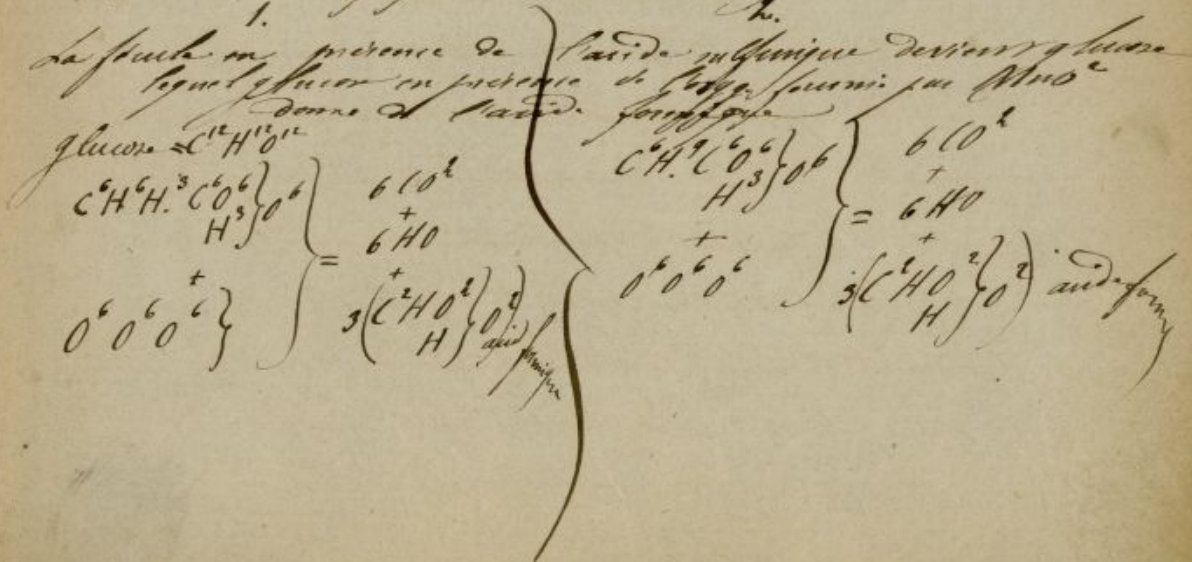 1. 2.
La fécule en présence de l'acide sulfurique devient glucose
lequel glucose en présence de l'oxyg. fourni par MnO²
donne de l'acide formique
glucose = C¹²H¹²O¹²
C⁶H⁶H.³C⁶O⁶ } O⁶
H³
+
O⁶ O⁶ O⁶ }
=
6 CO²
+
6 HO
+
3 (C²HO² } O²)
H
acid formique
C⁶H.⁹C⁶O⁶ } O⁶
H³
+
O⁶ O⁶ O⁶
=
6 CO²
+
6 HO
+
3 (C²HO² } O²)
H
acide form